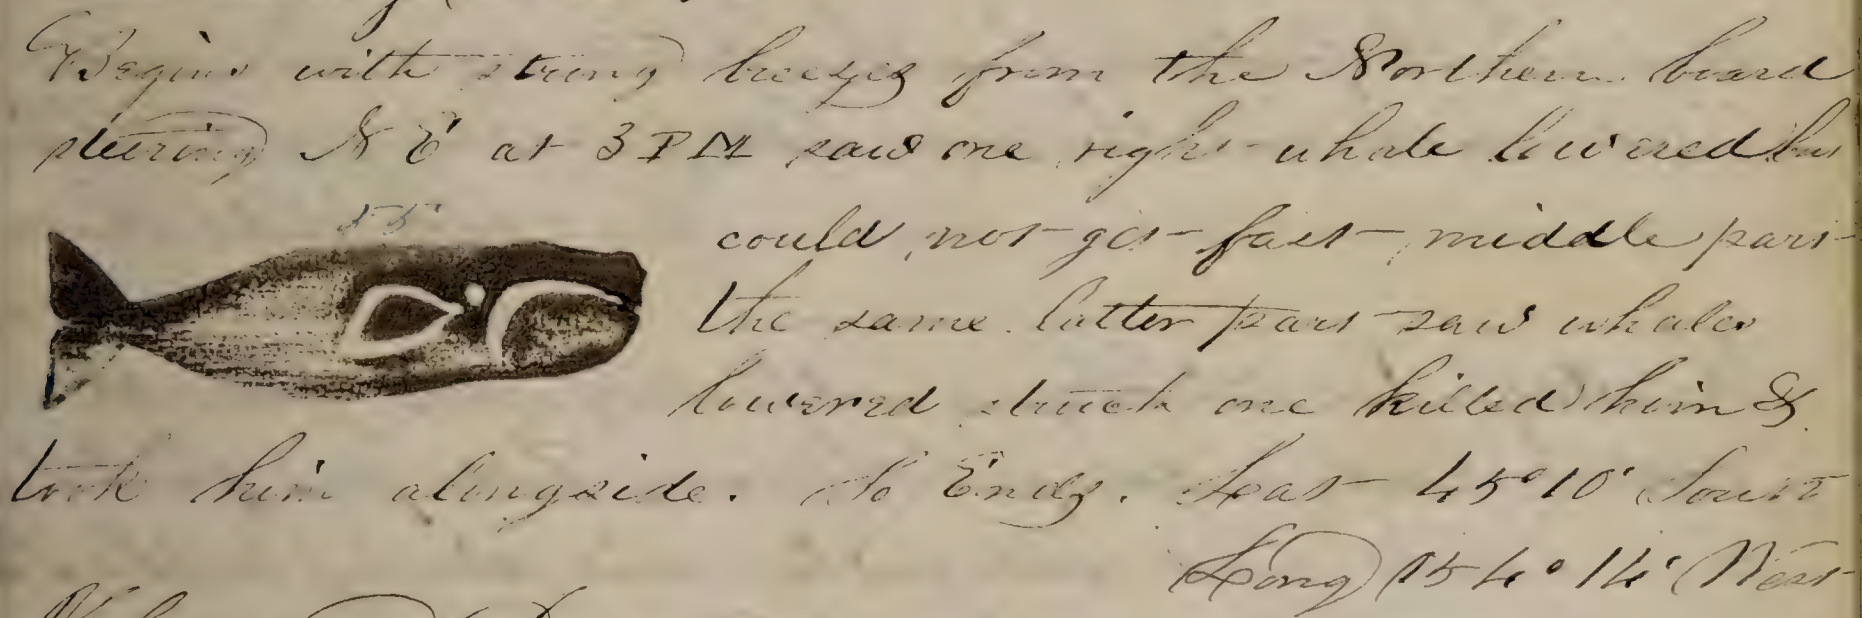 Begins with strong breezes from the Northern board
steering N E at 3 PM saw one right whale lowered but
55
could not get fast middle part
the same latter part saw whales
lowered struck one killed him &
took him alongside. So Ends. Lat 45°10' South
Long 154°14' West